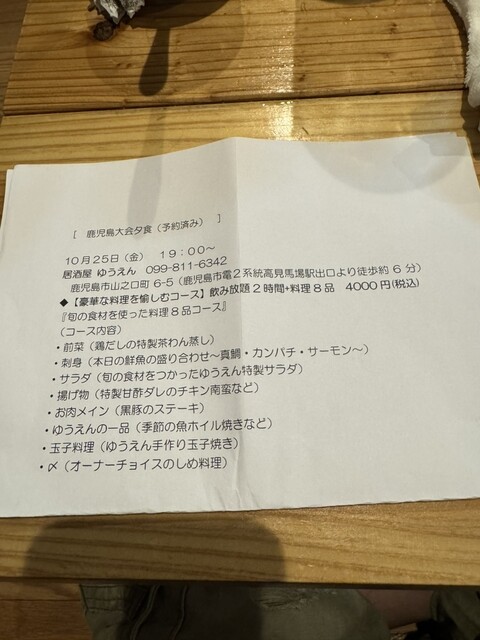 [ 鹿児島大会夕食(予約済み) ]
10月25日(金) 19:00~
居酒屋 ゆうえん 099-811-6342
鹿児島市山之口町 6-5(鹿児島市電2系統高見馬場駅出口より徒歩約 6 分)
◆【豪華な料理を愉しむコース】飲み放題2時間+料理8品 4000円(税込)
『旬の食材を使った料理8品コース』
(コース内容)
・前菜(鶏だしの特製茶わん蒸し)
・刺身(本日の鮮魚の盛り合わせ~真鯛・カンパチ・サーモン~)
・サラダ(旬の食材をつかったゆうえん特製サラダ)
・揚げ物(特製甘酢ダレのチキン南蛮など)
・お肉メイン(黒豚のステーキ)
・ゆうえんの一品(季節の魚ホイル焼きなど)
・玉子料理(ゆうえん手作り玉子焼き)
・〆(オーナーチョイスのしめ料理)